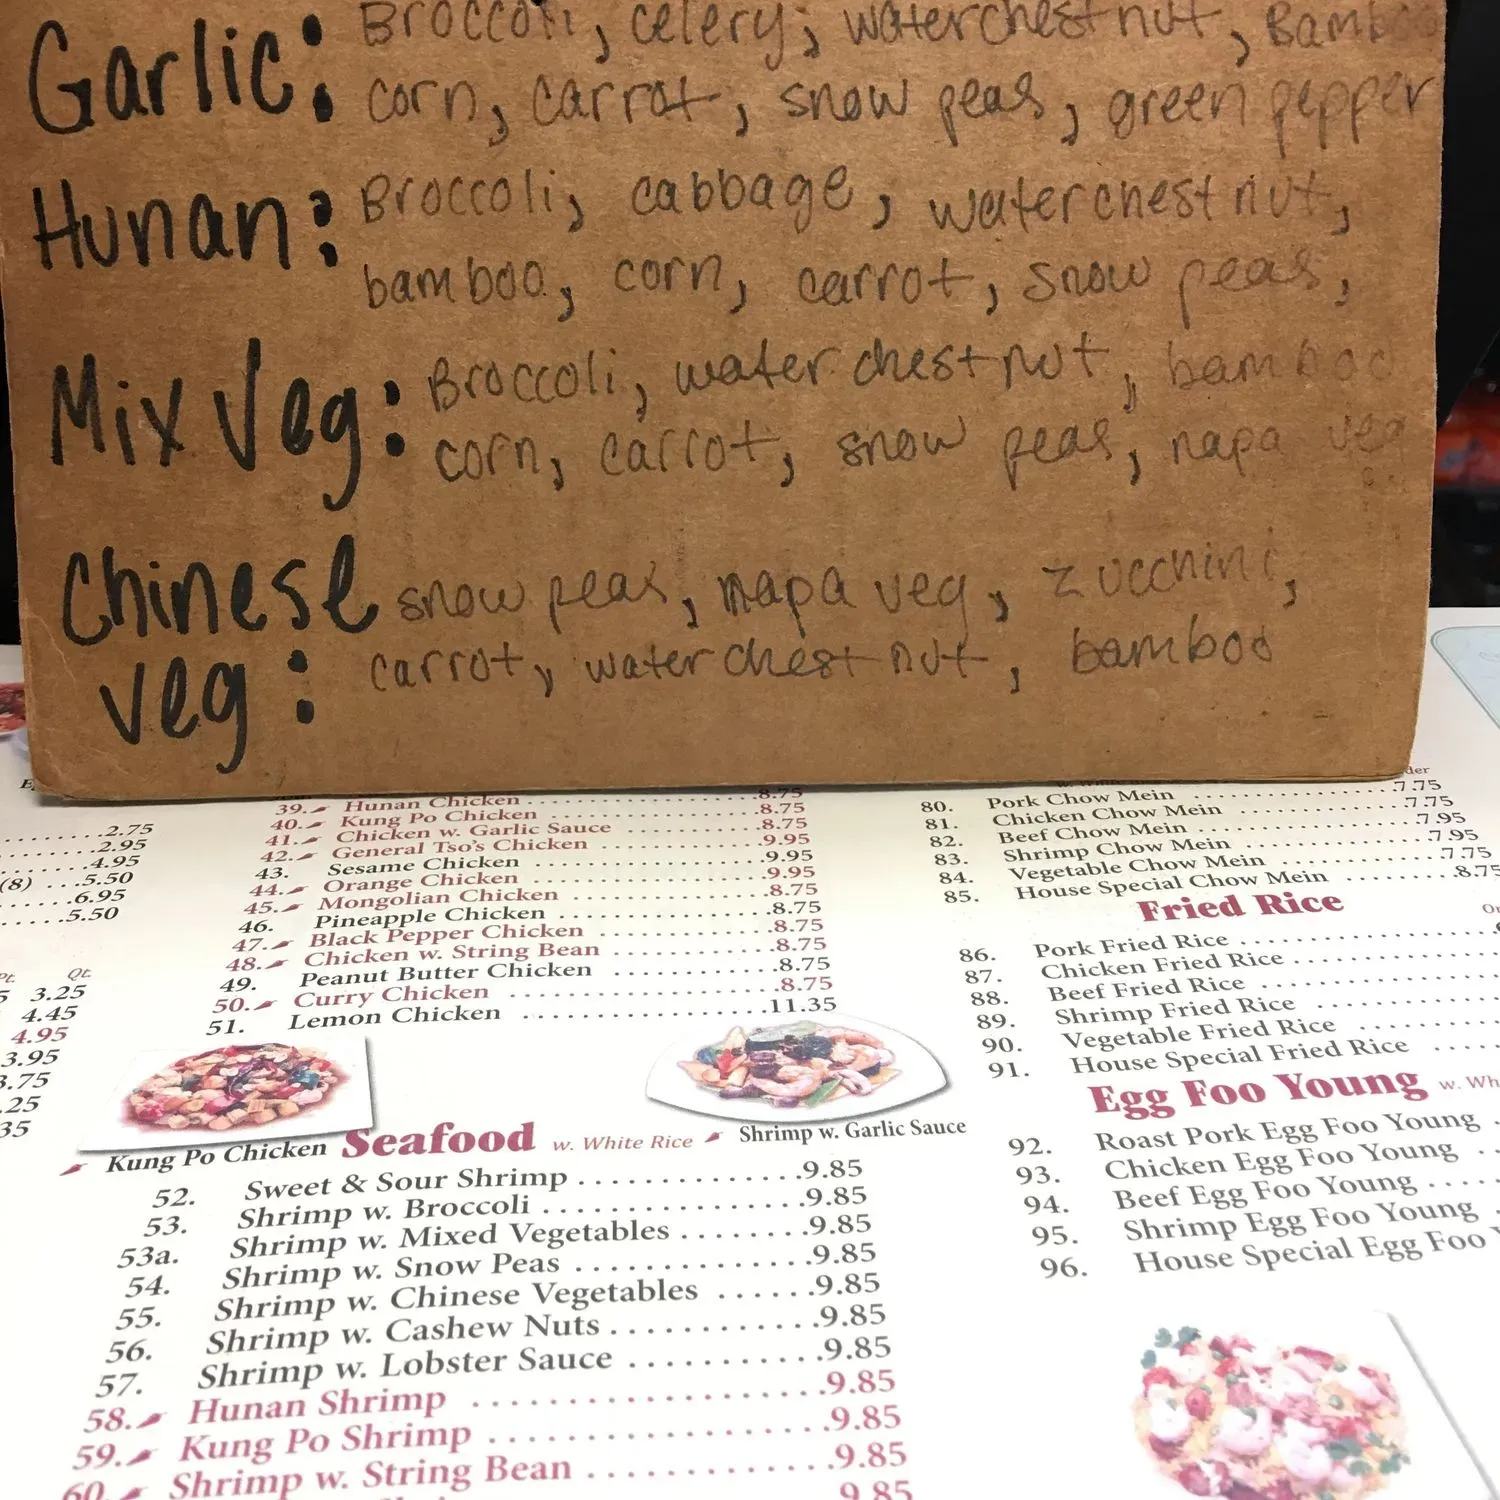 Garlic: Broccoli, celery, waterchestnut, Bamboo
corn, carrot, snow peas, green pepper
Hunan: Broccoli, cabbage, waterchestnut,
bamboo, corn, carrot, snow peas,
Mix Veg: Broccoli, water chestnut, bamboo
corn, carrot, snow peas, napa veg
Chinese snow peas, napa veg, zucchini,
veg: carrot, water chestnut, bamboo
2.75
2.95
4.95
(8) ...5.50
6.95
5.50
Pt. Qt.
5 3.25
4.45
4.95
3.95
3.75
.25
35
39. Hunan Chicken 8.75
40. Kung Po Chicken 8.75
41. Chicken w. Garlic Sauce 8.75
42. General Tso's Chicken 9.95
43. Sesame Chicken 9.95
44. Orange Chicken 9.95
45. Mongolian Chicken 8.75
46. Pineapple Chicken 8.75
47. Black Pepper Chicken 8.75
48. Chicken w. String Bean 8.75
49. Peanut Butter Chicken 8.75
50. Curry Chicken 8.75
51. Lemon Chicken 11.35
Kung Po Chicken
Shrimp w. Garlic Sauce
Seafood w. White Rice
52. Sweet & Sour Shrimp 9.85
53. Shrimp w. Broccoli 9.85
53a. Shrimp w. Mixed Vegetables 9.85
54. Shrimp w. Snow Peas 9.85
55. Shrimp w. Chinese Vegetables 9.85
56. Shrimp w. Cashew Nuts 9.85
57. Shrimp w. Lobster Sauce 9.85
58. Hunan Shrimp 9.85
59. Kung Po Shrimp 9.85
60. Shrimp w. String Bean 9.85
9.85
der
80. Pork Chow Mein 7.75
81. Chicken Chow Mein 7.75
82. Beef Chow Mein 7.95
83. Shrimp Chow Mein 7.95
84. Vegetable Chow Mein 7.75
85. House Special Chow Mein 8.75
Fried Rice
86. Pork Fried Rice
87. Chicken Fried Rice
88. Beef Fried Rice
89. Shrimp Fried Rice
90. Vegetable Fried Rice
91. House Special Fried Rice
Egg Foo Young w. Wh
92. Roast Pork Egg Foo Young
93. Chicken Egg Foo Young
94. Beef Egg Foo Young
95. Shrimp Egg Foo Young
96. House Special Egg Foo Y